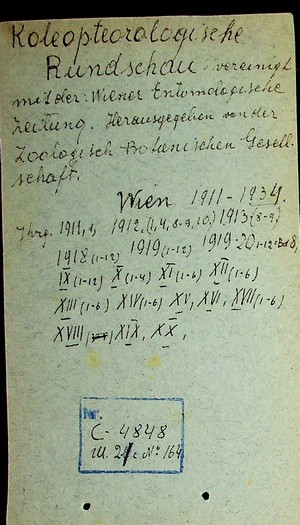 Koleopteorologische
Rundschau vereinigt
mit der Wiener Entomologische
Zeitung. Herausgegeben von der
Zoologisch-Botenischen Gesell-
schaft.
Wien 1911-1934.
Jhrg. 1911, 1912, (1,4, 8-9, 10,) 1913 (8-9)
1918 (1-12) 1919 (1-12) 1919-20 1-12 Bd 8,
IX (1-12) X (1-4) XI (1-6) XII (1-6)
XIII (1-6) XIV (1-6) XV, XVI, XVII (1-6)
XVIII XIX, XX,
Nr.
C-4848
Ш. 2 c № 164